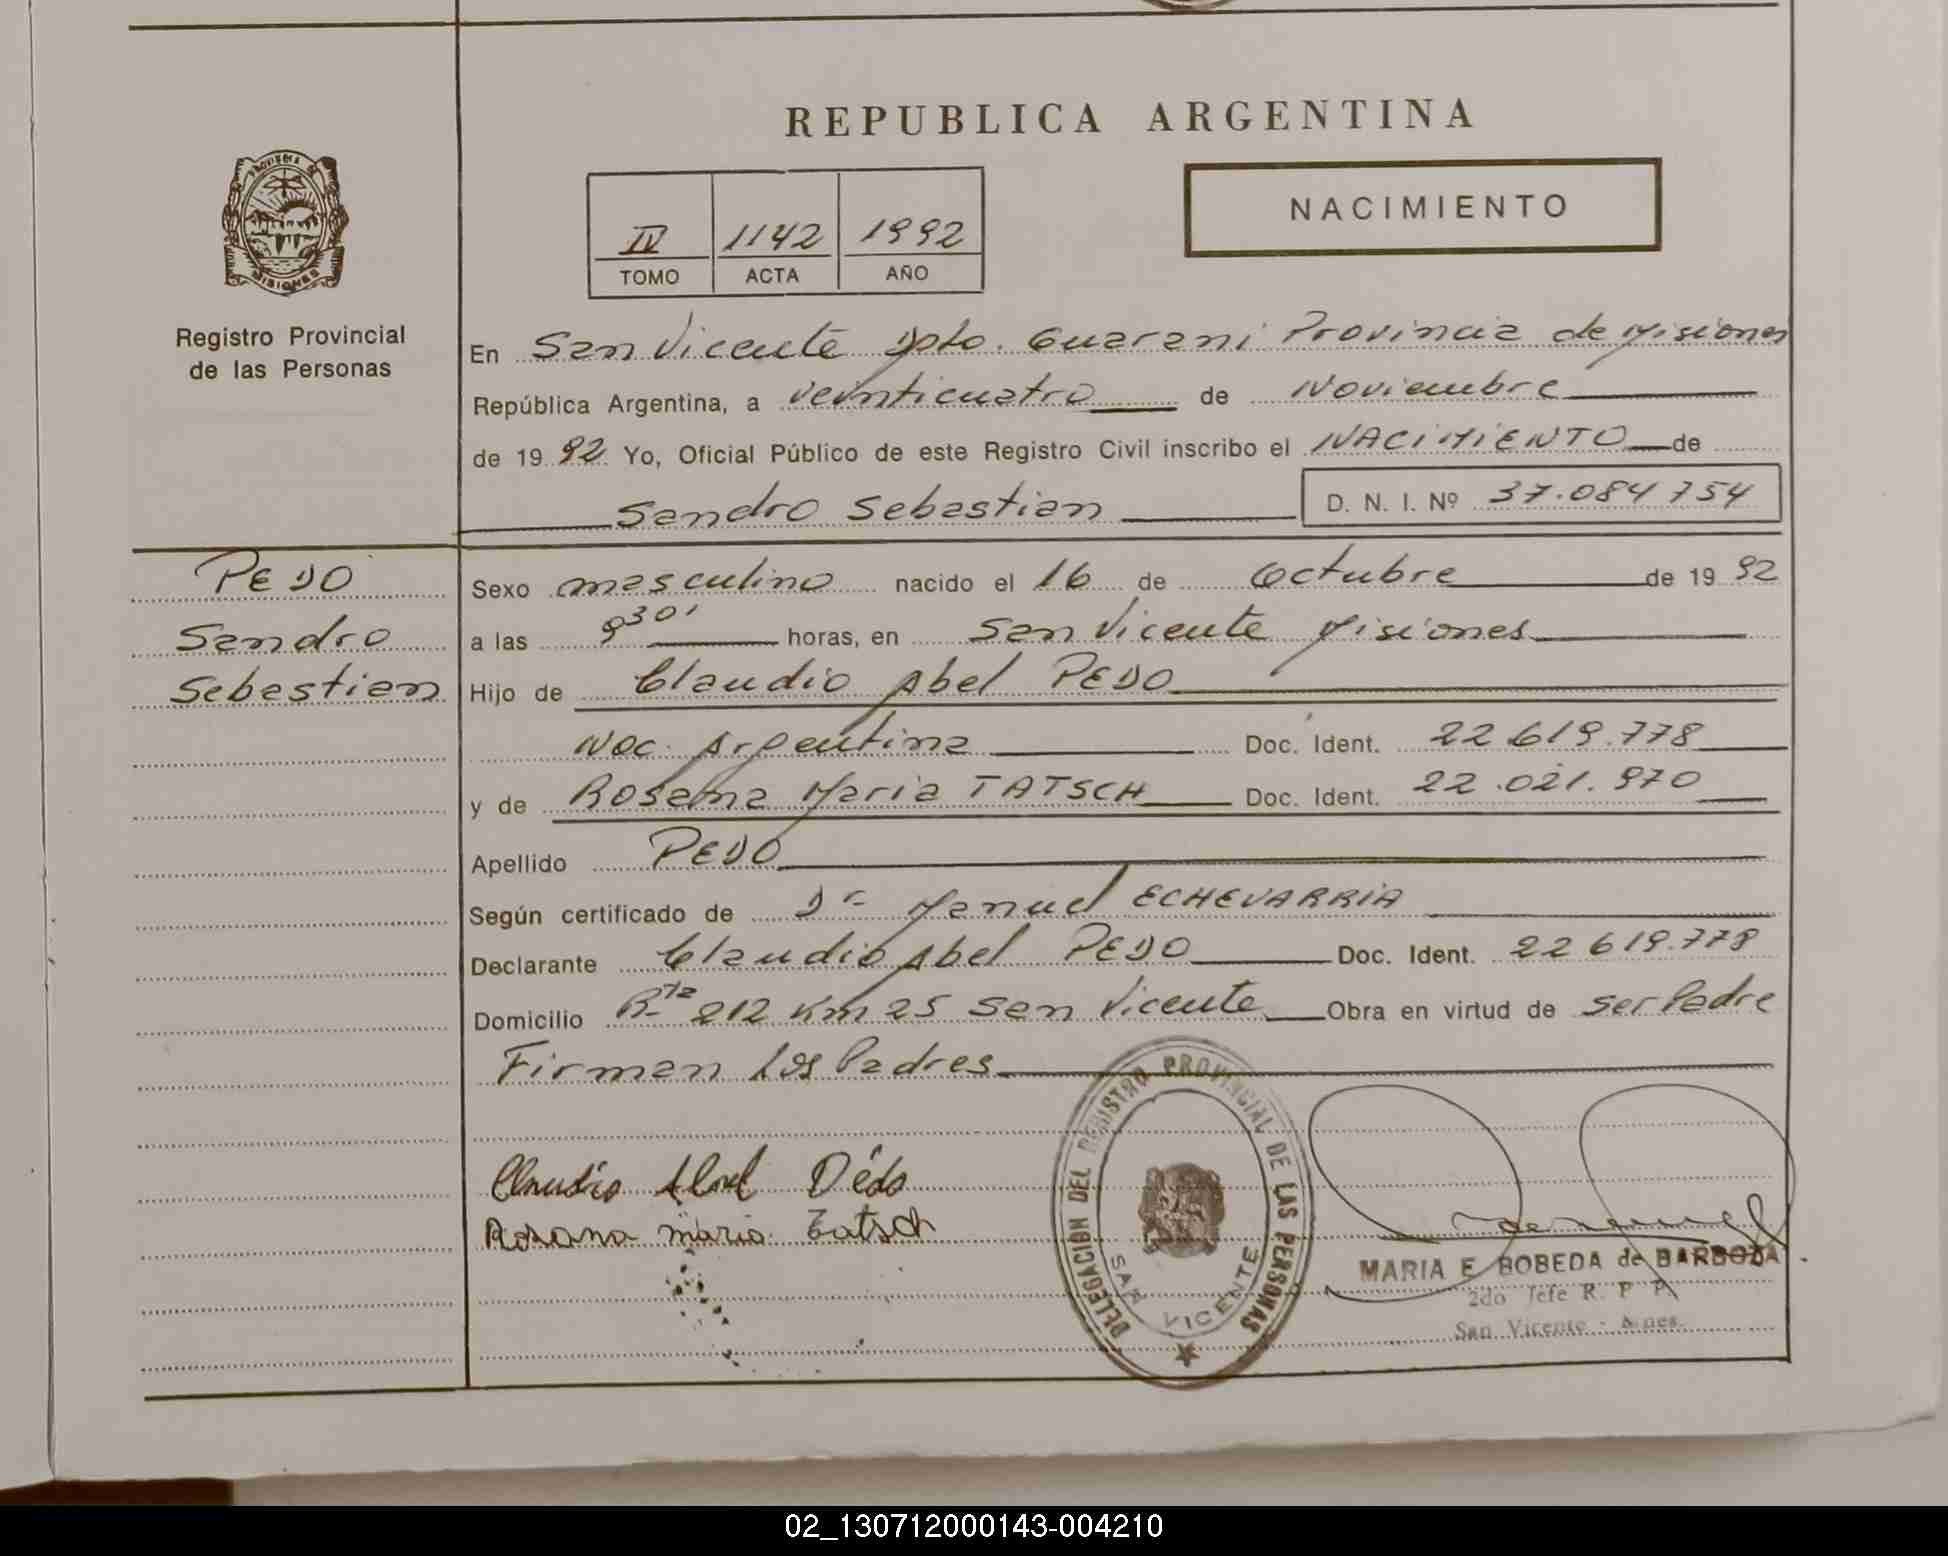 REPUBLICA ARGENTINA
PROVINCIA DE MISIONES
Registro Provincial
de las Personas
IV 1142 1992
TOMO ACTA AÑO
NACIMIENTO
En San Vicente Dpto. Guarani Provincia de Misiones
República Argentina, a veinticuatro de Noviembre
de 1992 Yo, Oficial Público de este Registro Civil inscribo el NACIMIENTO de
Sandro Sebastian D. N. I. Nº 37.084754
PEDO
Sandro
Sebastian
Sexo masculino nacido el 16 de Octubre de 1992
a las 9 30' horas, en San Vicente Misiones
Hijo de Claudio Abel PEDO
Nac. Argentina Doc. Ident. 22619.778
y de Rosana Maria TATSCH Doc. Ident. 22.021.970
Apellido PEDO
Según certificado de Dr Manuel ECHEVARRIA
Declarante Claudio Abel PEDO Doc. Ident. 22619.778
Domicilio R-ta 212 Km 25 San Vicente Obra en virtud de ser Padre
Firman los Padres
Claudio Abel Pédo
Rosana maria Tatsch
DELEGACION DEL REGISTRO PROVINCIAL DE LAS PERSONAS
SAN VICENTE
MARIA E. BOBEDA de BARBOZA
2do Jefe R. P. P.
San Vicente - Mnes.
02_130712000143-004210